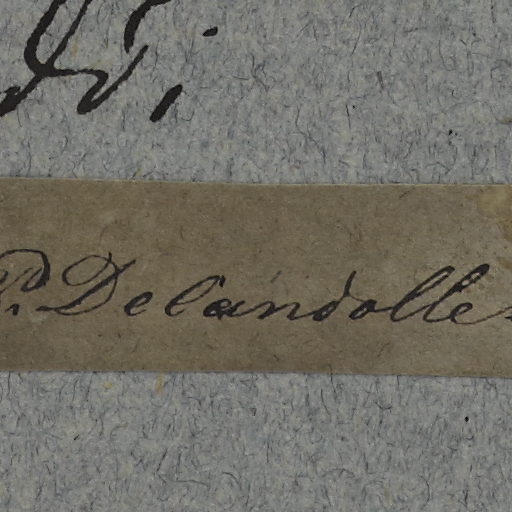 P. Decandolle